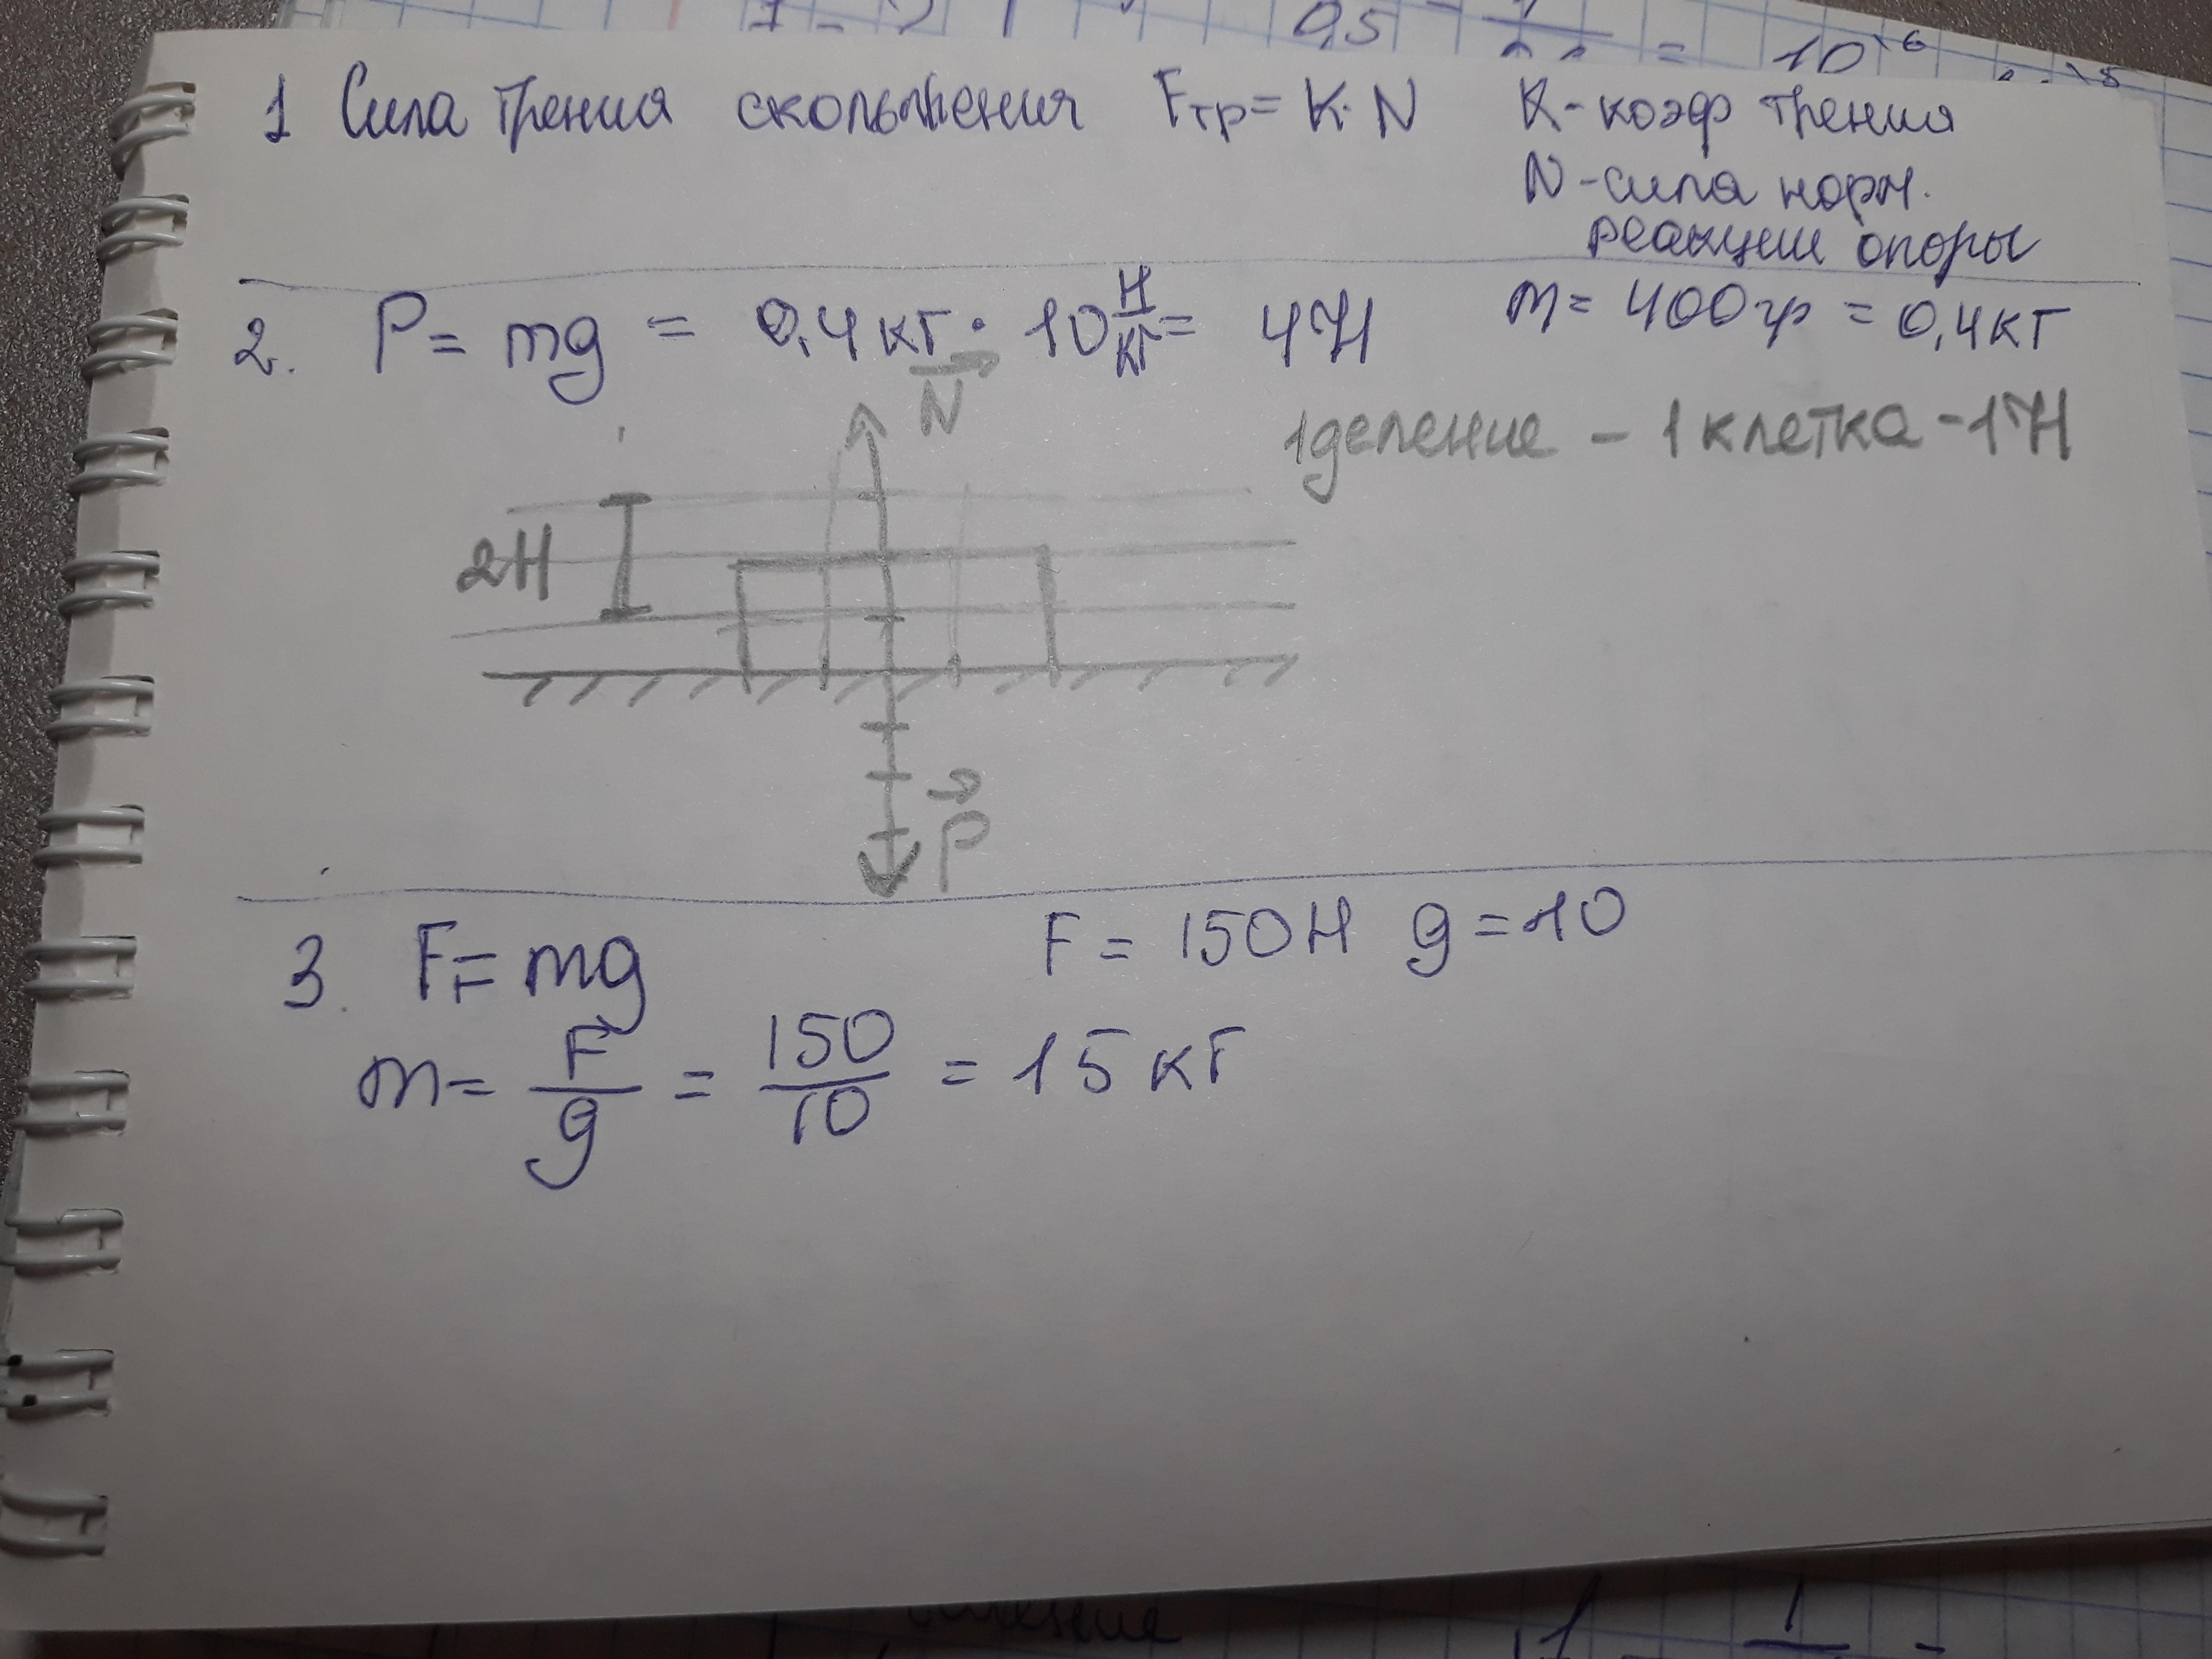 0,5
= 10
1 Сила трения скольжения Fтр = K·N K - коэф трения
N - сила норм.
реакции опоры
2. P = mg = 0,4 кг · 10 Н/кг = 4Н m = 400 гр = 0,4 кг
N
1 деление - 1 клетка - 1Н
2Н
P
3. Fт = mg F = 150Н g = 10
m = F/g = 150/10 = 15 кг